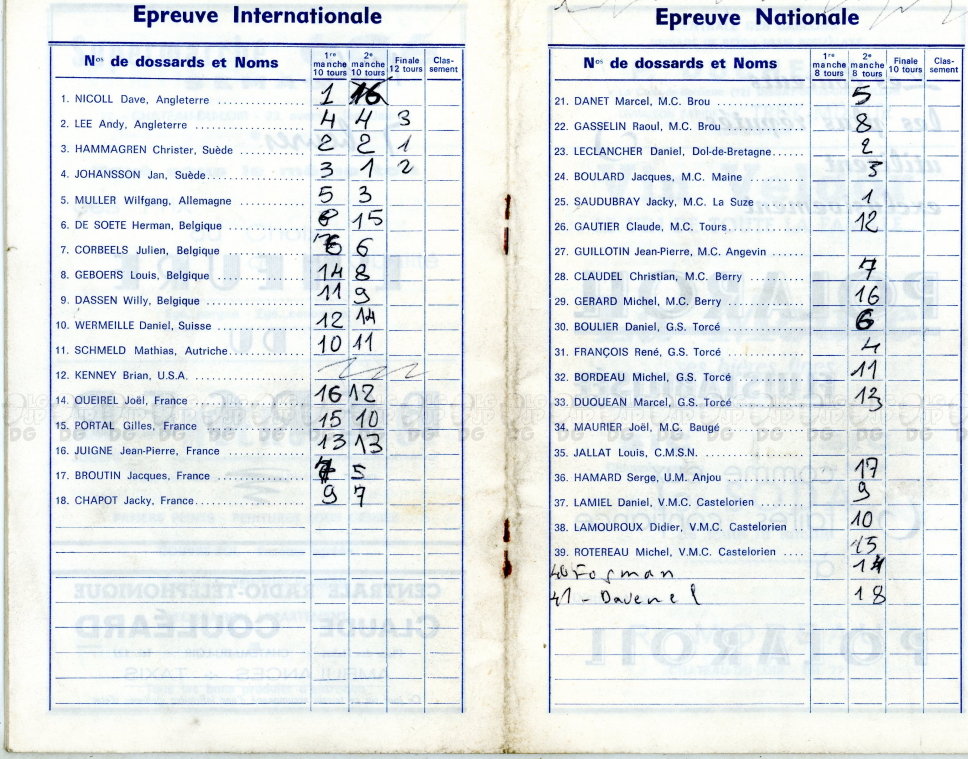 Epreuve Internationale
Nos de dossards et Noms 1re manche 10 tours 2e manche 10 tours Finale 12 tours Clas-sement
1. NICOLL Dave, Angleterre 1 16
2. LEE Andy, Angleterre 4 4 3
3. HAMMAGREN Christer, Suède 2 2 1
4. JOHANSSON Jan, Suède 3 1 2
5. MULLER Wilfgang, Allemagne 5 3
6. DE SOETE Herman, Belgique 15
7. CORBEELS Julien, Belgique 6 6
8. GEBOERS Louis, Belgique 14 8
9. DASSEN Willy, Belgique 11 9
10. WERMEILLE Daniel, Suisse 12 14
11. SCHMELD Mathias, Autriche 10 11
12. KENNEY Brian, U.S.A.
14. QUEIREL Joël, France 16 12
15. PORTAL Gilles, France 15 10
16. JUIGNE Jean-Pierre, France 13 13
17. BROUTIN Jacques, France 5
18. CHAPOT Jacky, France 9 7
Epreuve Nationale
Nos de dossards et Noms 1re manche 8 tours 2e manche 8 tours Finale 10 tours Clas-sement
21. DANET Marcel, M.C. Brou 5
22. GASSELIN Raoul, M.C. Brou 8
23. LECLANCHER Daniel, Dol-de-Bretagne 2
24. BOULARD Jacques, M.C. Maine 3
25. SAUDUBRAY Jacky, M.C. La Suze 1
26. GAUTIER Claude, M.C. Tours 12
27. GUILLOTIN Jean-Pierre, M.C. Angevin
28. CLAUDEL Christian, M.C. Berry 7
29. GERARD Michel, M.C. Berry 16
30. BOULIER Daniel, G.S. Torcé 6
31. FRANÇOIS René, G.S. Torcé 4
32. BORDEAU Michel, G.S. Torcé 11
33. DUQUEAN Marcel, G.S. Torcé 13
34. MAURIER Joël, M.C. Baugé
35. JALLAT Louis, C.M.S.N.
36. HAMARD Serge, U.M. Anjou 17
37. LAMIEL Daniel, V.M.C. Castelorien 9
38. LAMOUROUX Didier, V.M.C. Castelorien 10
39. ROTEREAU Michel, V.M.C. Castelorien 15
40 Fosman 14
41 - Davenel 18